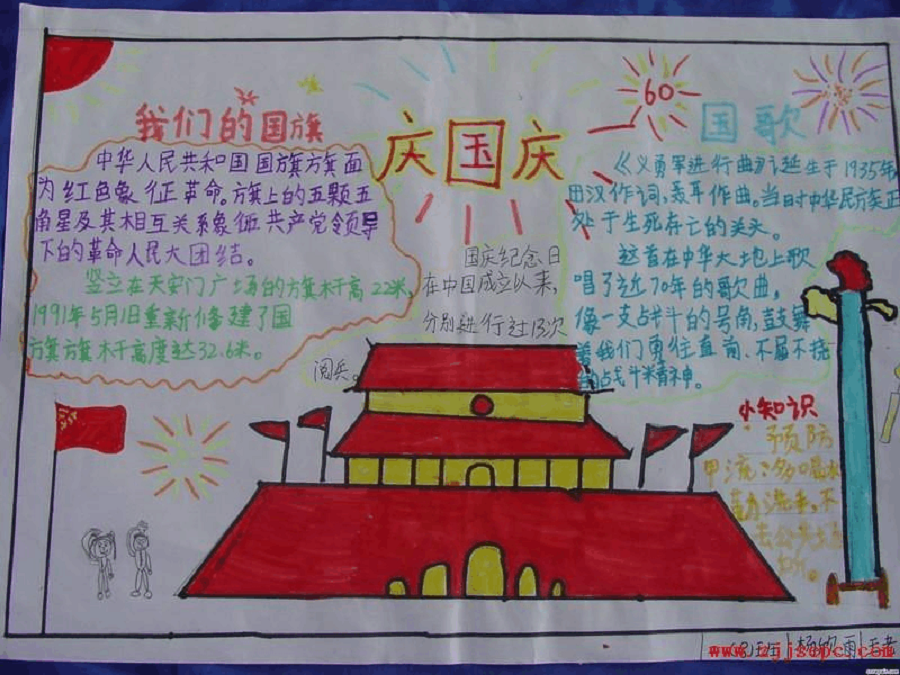 我们的国旗
中华人民共和国国旗方旗面
为红色象征革命。方旗上的五颗五
角星及其相互关系象征共产党领导
下的革命人民大团结。
竖立在天安门广场的方旗杆高22米,
1991年5月1日重新修建了国
方旗方旗杆高度达32.6米。
庆国庆
60
国庆纪念日
在中国成立以来,
分别进行过13次
阅兵。
国歌
《义勇军进行曲》诞生于1935年,
田汉作词,聂耳作曲。当时中华民族正
处于生死存亡的关头。
这首在中华大地上歌
唱了近70年的歌曲,
像一支战斗的号角,鼓舞
着我们勇往直前、不屈不挠
的战斗精神。
小知识
预防
甲流:多喝水
不
去公共场
所。